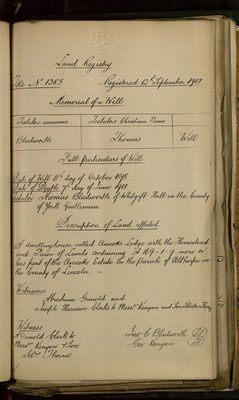 Land Registry
File No 1385 Registered 12th September 1901
Memorial of a Will
Testators surname Testators Christian Name
Bludworth Thomas Will
Full Particulars of Will
Date of Will 11th day of October 1898
Date of Death 7th day of June 1901
Testator Thomas Bludworth of Whitgift Hall in the County
of York Gentleman
Description of Land affected
A dwellinghouse called Amcotts Lodge with the Homestead
and Farm of Lands containing
less part of the Amcotts Estate in the parish of Althorpe in
the County of Lincoln
Witnesses
Abraham Grinold and
Joseph Harrison Clerks to Messrs Kenyon and
Witness
Grinold Clerk to
Messrs Kenyon & Son
Thorne
Jno C Bludworth
Geo Kenyon